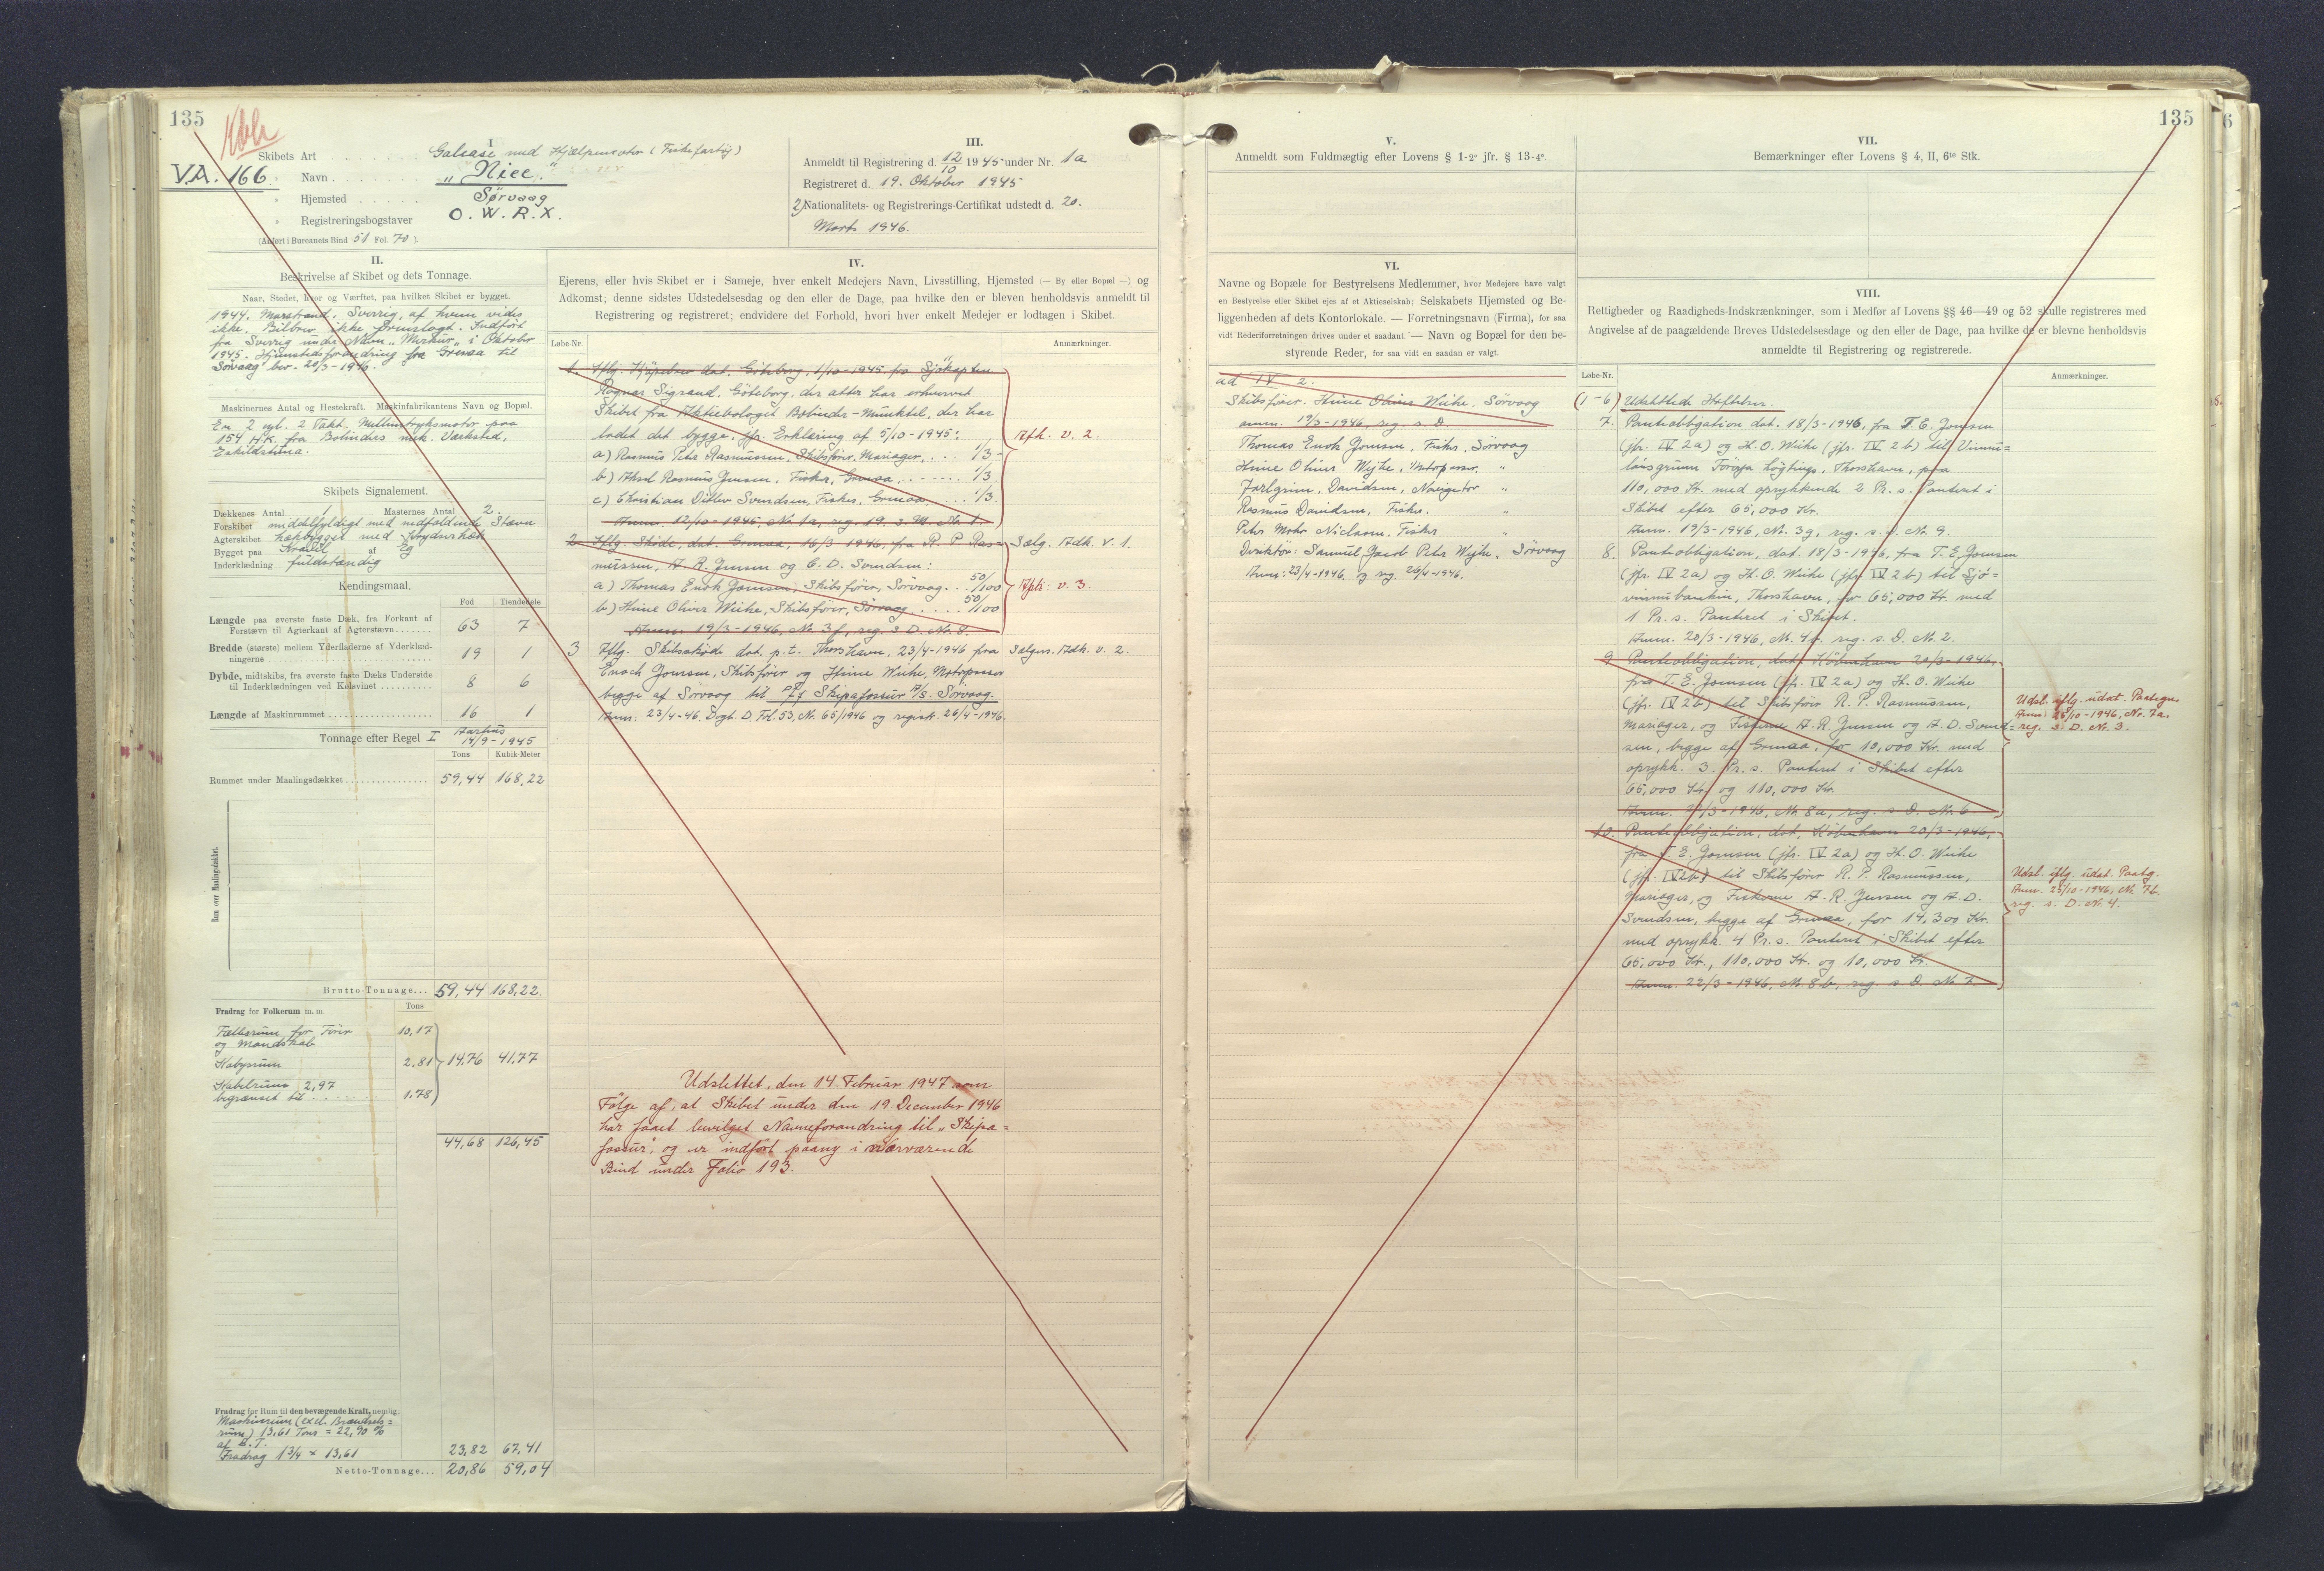 135
VA. 166
I
Skibets Art . . . . Galease med Hjælpemotor (Fiskefartøj)
" Navn . . . . „Nice."
" Hjemsted . . . . Sørvaag
" Registreringsbogstaver O. W. R. X.
(Anført i Bureauets Bind 51 Fol. 70).
III.
Anmeldt til Registrering d. 12/10 1945 under Nr. 1a
Registreret d. 19. Oktober 1945
2) Nationalitets- og Registrerings-Certifikat udstedt d. 20.
Marts 1946.
II.
Beskrivelse af Skibet og dets Tonnage.
Naar, Stedet, hvor og Værftet, paa hvilket Skibet er bygget.
1944. Marstrand, Sverrig, af hvem vides
ikke. Bilbrev ikke fremlagt. Indført
fra Sverrig under Navn „Merkur" i Oktober
1945. Hjemstedsforandring fra Grenaa til
Sørvaag bev. 20/3-1946.
Maskinernes Antal og Hestekraft. Maskinfabrikantens Navn og Bopæl.
En 2 cyl. 2 Takt, Mellemtryksmotor paa
154 HK. fra Bolinders mek. Værksted,
Eskilstuna.
Skibets Signalement.
Dækkenes Antal 1 Masternes Antal 2.
Forskibet middelfyldigt med nedfaldende Stævn
Agterskibet hækbygget med Krydserhæk
Bygget paa Kravel af Eg
Inderklædning fuldstændig
Kendingsmaal.
Fod Tiendedele
Længde paa øverste faste Dæk, fra Forkant af
Forstævn til Agterkant af Agterstævn . . . . 63 7
Bredde (største) mellem Yderfladerne af Yderklæd-
ningerne . . . . 19 1
Dybde, midtskibs, fra øverste faste Dæks Underside
til Inderklædningen ved Kølsvinet . . . . 8 6
Længde af Maskinrummet . . . . 16 1
Tonnage efter Regel I Aarhus
14/9-1945
Tons Kubik-Meter
Rummet under Maalingsdækket . . . . 59,44 168,22
Rum over Maalingsdækket.
Brutto-Tonnage... 59,44 168,22
Fradrag for Folkerum m. m. Tons
Fællesrum for Fører 10,17
og Mandskab
Kabysrum 2,81 14,76 41,77
Kabelrum 2,97
begrænset til . . . . 1.78
44,68 126,45
Fradrag for Rum til den bevægende Kraft, nemlig:
Maskinrum (excl. Brændsels=
rum) 13,61 Tons = 22,90 %
af B.T.
Fradrag 1 3/4 × 13,61 23,82 67,41
Netto-Tonnage... 20,86 59,04
IV.
Ejerens, eller hvis Skibet er i Sameje, hver enkelt Medejers Navn, Livsstilling, Hjemsted (— By eller Bopæl —) og
Adkomst; denne sidstes Udstedelsesdag og den eller de Dage, paa hvilke den er bleven henholdsvis anmeldt til
Registrering og registreret; endvidere det Forhold, hvori hver enkelt Medejer er lodtagen i Skibet.
Løbe-Nr. Anmærkninger.
1. Iflg. Kjøpebrev dat. Göteborg, 1/10-1945 fra Sjökapten
Ragnar Sigrand, Göteborg, der atter har erhvervet
Skibet fra Aktiebolaget Bolinder-Munktell, der har
ladet det bygge, jfr. Erklæring af 5/10-1945: Afh. v. 2.
a) Rasmus Peter Rasmussen, Skibsfører, Mariager, . . . 1/3
b) Aksel Rasmus Jensen, Fisker, Grenaa, . . . . 1/3
c) Christian Ditlev Svendsen, Fisker, Grenaa . . . 1/3.
Anm. 12/10-1945, Nr. 1a, reg. 19. s. M. Nr. 1.
2. Iflg. Skøde, dat. Grenaa, 16/3-1946, fra R. P. Ras= Sælg. Adk. v. 1.
mussen, A. R. Jensen og C. D. Svendsen:
a) Thomas Enok Joensen, Skibsfører, Sørvaag . . 50/100 Afh. v. 3.
b) Heine Oliver Weihe, Skibsfører, Sørvaag . . . . 50/100
Anm. 19/3-1946, Nr. 3f, reg. s. D. Nr. 8.
3 Iflg. Skibsskøde dat. p.t. Thorshavn, 23/4-1946 fra Sælgers. Adk. v. 2.
Enoch Joensen, Skibsfører og Heine Weihe, Motorpasser
begge af Sørvaag til P/f Skipafossur A/s. Sørvaag.
Anm: 23/4-46. Dagb. D. Fol. 53. Nr. 65/1946 og registr. 26/4-1946.
Udslettet, den 14. Februar 1947 som
Følge af, at Skibet under den 19. December 1946
har faaet bevilget Navneforandring til „Skipa=
fossur", og er indført paany i nærværende
Bind under Folio 193.
135
V.
Anmeldt som Fuldmægtig efter Lovens § 1-2° jfr. § 13-4°.
VI.
Navne og Bopæle for Bestyrelsens Medlemmer, hvor Medejere have valgt
en Bestyrelse eller Skibet ejes af et Aktieselskab; Selskabets Hjemsted og Be-
liggenheden af dets Kontorlokale. — Forretningsnavn (Firma), for saa
vidt Rederiforretningen drives under et saadant. — Navn og Bopæl for den be-
styrende Reder, for saa vidt en saadan er valgt.
ad IV 2.
Skibsfører Heine Oliver Weihe, Sørvaag
anm. 19/3-1946, reg. s. D.
Thomas Enok Joensen, Fisker, Sørvaag
Heine Oliver Wejhe, Motorpasser, "
Jarlgrim, Davidsen, Navigatør "
Rasmus Davidsen, Fisker. "
Peter Mohr Niclasen, Fisker "
Direktør: Samuel Jacob Peter Wejhe, Sørvaag
Anm: 23/4-1946. og reg. 26/4-1946.
VII.
Bemærkninger efter Lovens § 4, II, 6te Stk.
VIII.
Rettigheder og Raadigheds-Indskrænkninger, som i Medfør af Lovens §§ 46—49 og 52 skulle registreres med
Angivelse af de paagældende Breves Udstedelsesdage og den eller de Dage, paa hvilke de er blevne henholdsvis
anmeldte til Registrering og registrerede.
Løbe-Nr. Anmærkninger.
(1-6) Udslettede Hæftelser.
7. Panteobligation dat. 18/3-1946, fra T. E. Joensen
(jfr. IV 2a) og H. O. Weihe (jfr. IV 2b) til Vinnu=
lánsgrunn Føroya Løgtings, Thorshavn, paa
110,000 Kr. med oprykkende 2 Pr. s. Panteret i
Skibet efter 65,000 Kr.
Anm. 19/3-1946, Nr. 3g, reg. s. D. Nr. 9.
8. Panteobligation, dat. 18/3-1946, fra T. E. Joensen
(jfr. IV 2a) og H. O. Weihe (jfr. IV 2b) til Sjó=
vinnubankin, Thorshavn, for 65,000 Kr. med
1 Pr. s. Panteret i Skibet.
Anm. 20/3-1946, Nr. 4 reg. s. D. Nr. 2.
9. Panteobligation, dat. København 20/3-1946,
fra T. E. Joensen (jfr. IV 2a) og H. O. Weihe
(jfr. IV 2b) til Skibsfører R. P. Rasmussen, Udsl. iflg. udat. Paategn.
Mariager, og Fiskerne A. R. Jensen og A. D. Svend= Anm. 25/10-1946, Nr. 7a.
sen, begge af Grenaa, for 10,000 Kr. med reg. s. D. Nr. 3.
oprykk. 3. Pr. s. Panteret i Skibet efter
65,000 Kr. og 110,000 Kr.
Anm. 22/3-1946, Nr. 8a, reg. s. D. Nr. 6
10. Panteobligation, dat. København 20/3-1946,
fra T. E. Joensen (jfr. IV 2a) og H. O. Weihe
(jfr. IV 2b) til Skibsfører R. P. Rasmussen, Udsl. iflg. udat. Paateg.
Mariager, og Fiskerne A. R. Jensen og A. D. Anm. 25/10-1946, Nr. 7b.
Svendsen, begge af Grenaa, for 14,300 Kr. reg. s. D. Nr. 4.
med oprykk. 4 Pr. s. Panteret i Skibet efter
65,000 Kr., 110,000 Kr. og 10,000 Kr.
Anm. 22/3-1946, Nr. 8b, reg. s. D. Nr. 7.
6